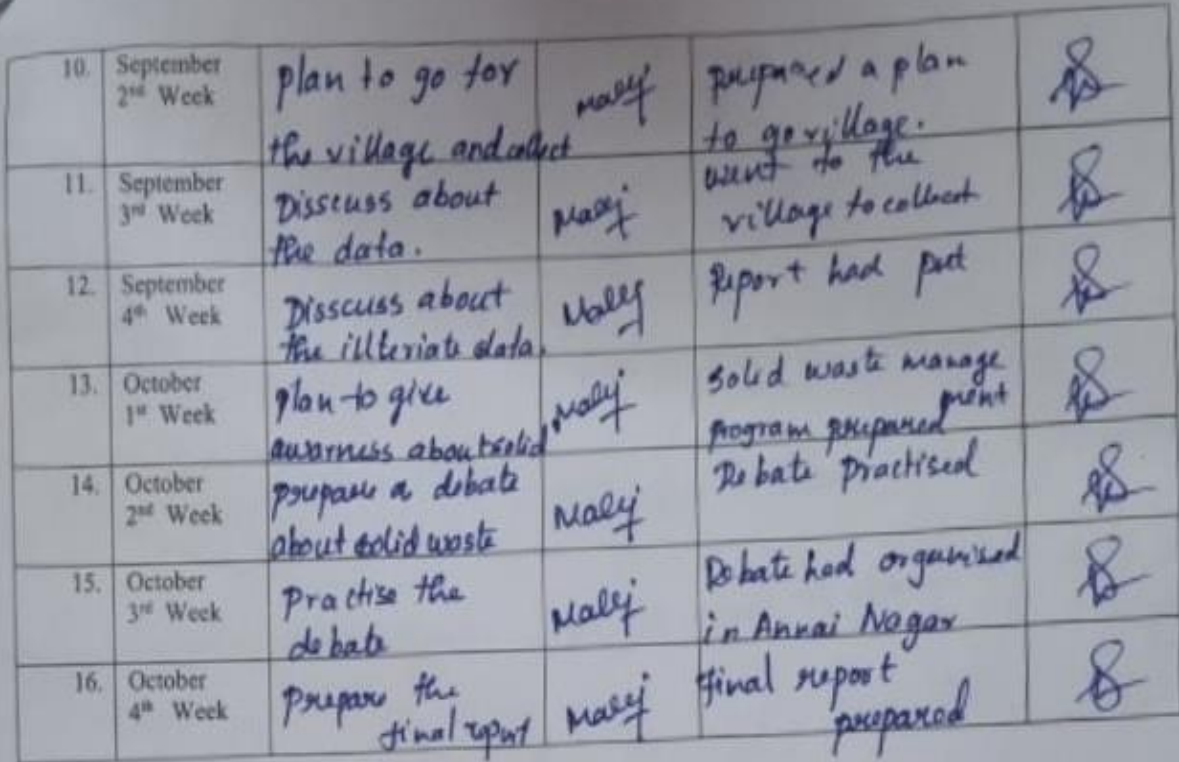 10. September 2nd Week plan to go for the village and collect prepared a plan to go village.
11. September 3rd Week Disscuss about the data. went to the village to collect
12. September 4th Week Disscuss about the illteriate data. Report had put
13. October 1st Week plan to give awarness about solid solid waste manage ment program prepared
14. October 2nd Week prepare a debate about solid waste Debate Practised
15. October 3rd Week Practise the debate Debate had organised in Annai Nagar
16. October 4th Week Prepare the final report final report prepared